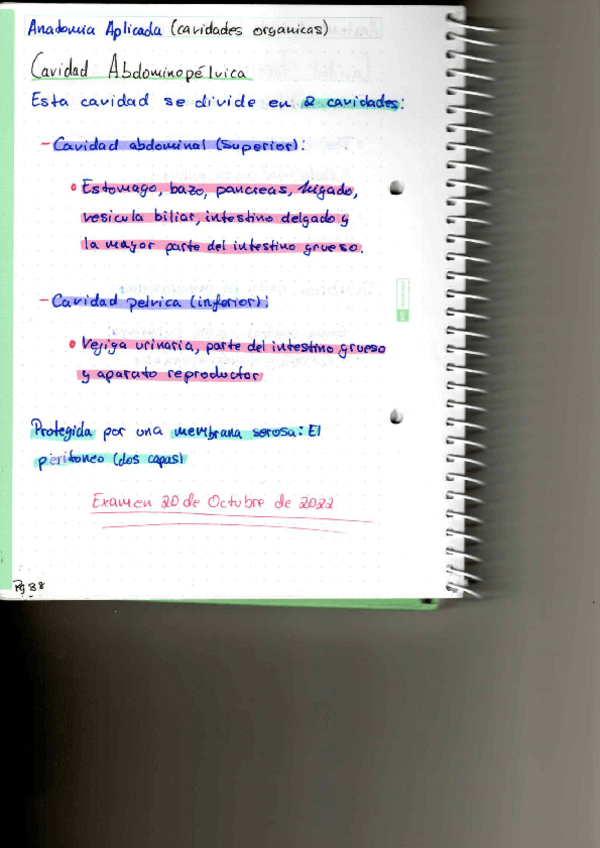 Anatomia Aplicada (cavidades orgánicas)
Cavidad Abdominopélvica
Esta cavidad se divide en 2 cavidades:
- Cavidad abdominal (superior):
• Estomago, bazo, pancreas, higado,
vesicula biliar, intestino delgado y
la mayor parte del intestino grueso.
- Cavidad pelvica (inferior):
• Vejiga urinaria, parte del intestino grueso
y aparato reproductor
Protegida por una membrana serosa: El
peritoneo (dos capas)
Examen 20 de Octubre de 2022
Pg 38